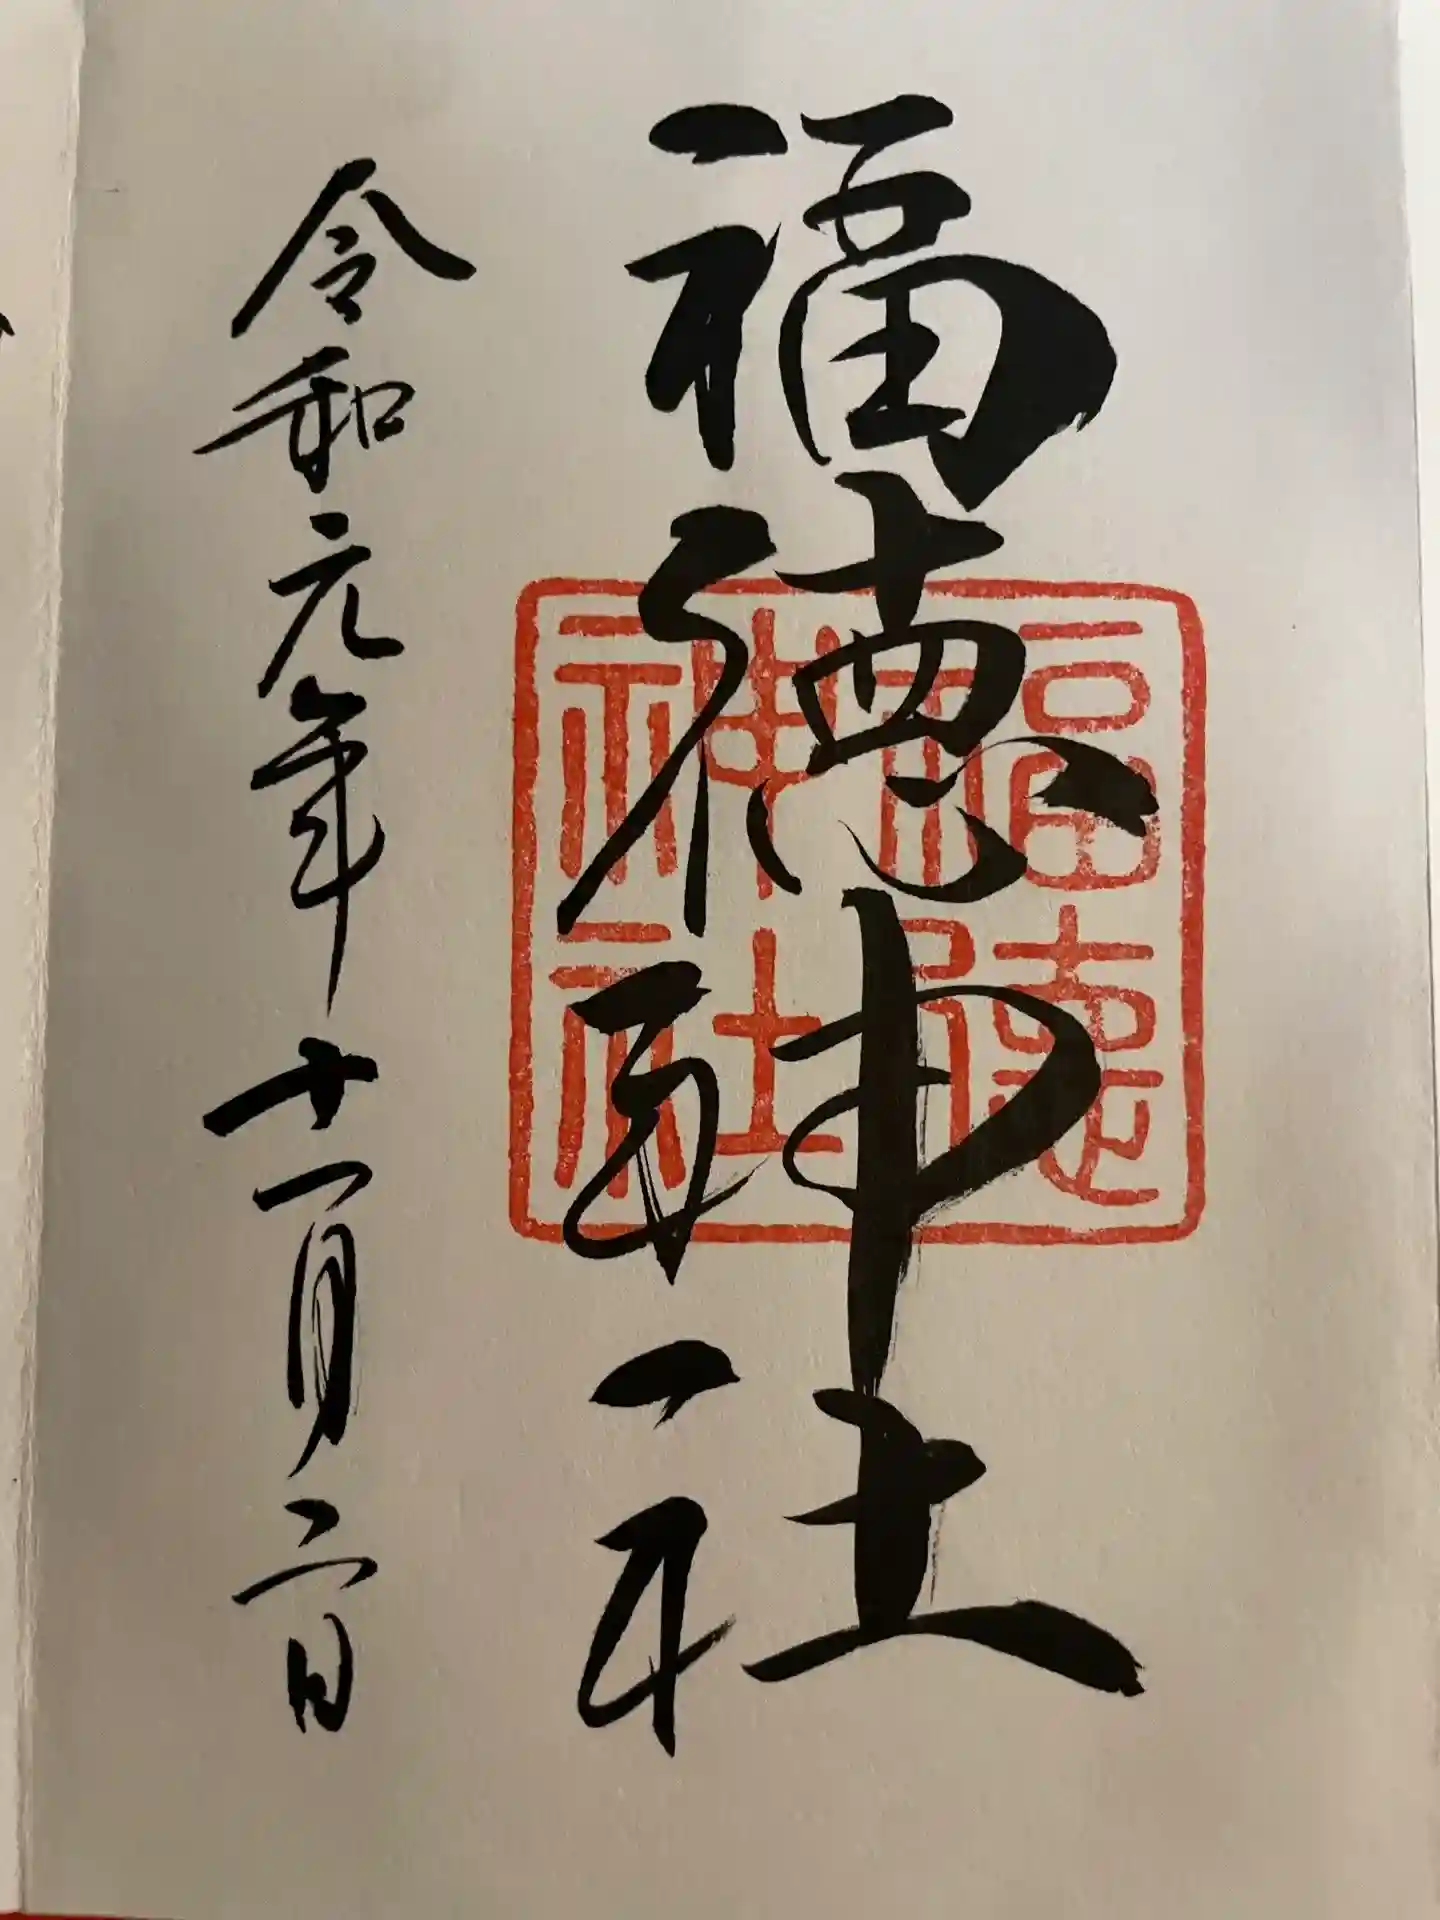 福徳神社
福徳神社
令和元年十一月二日